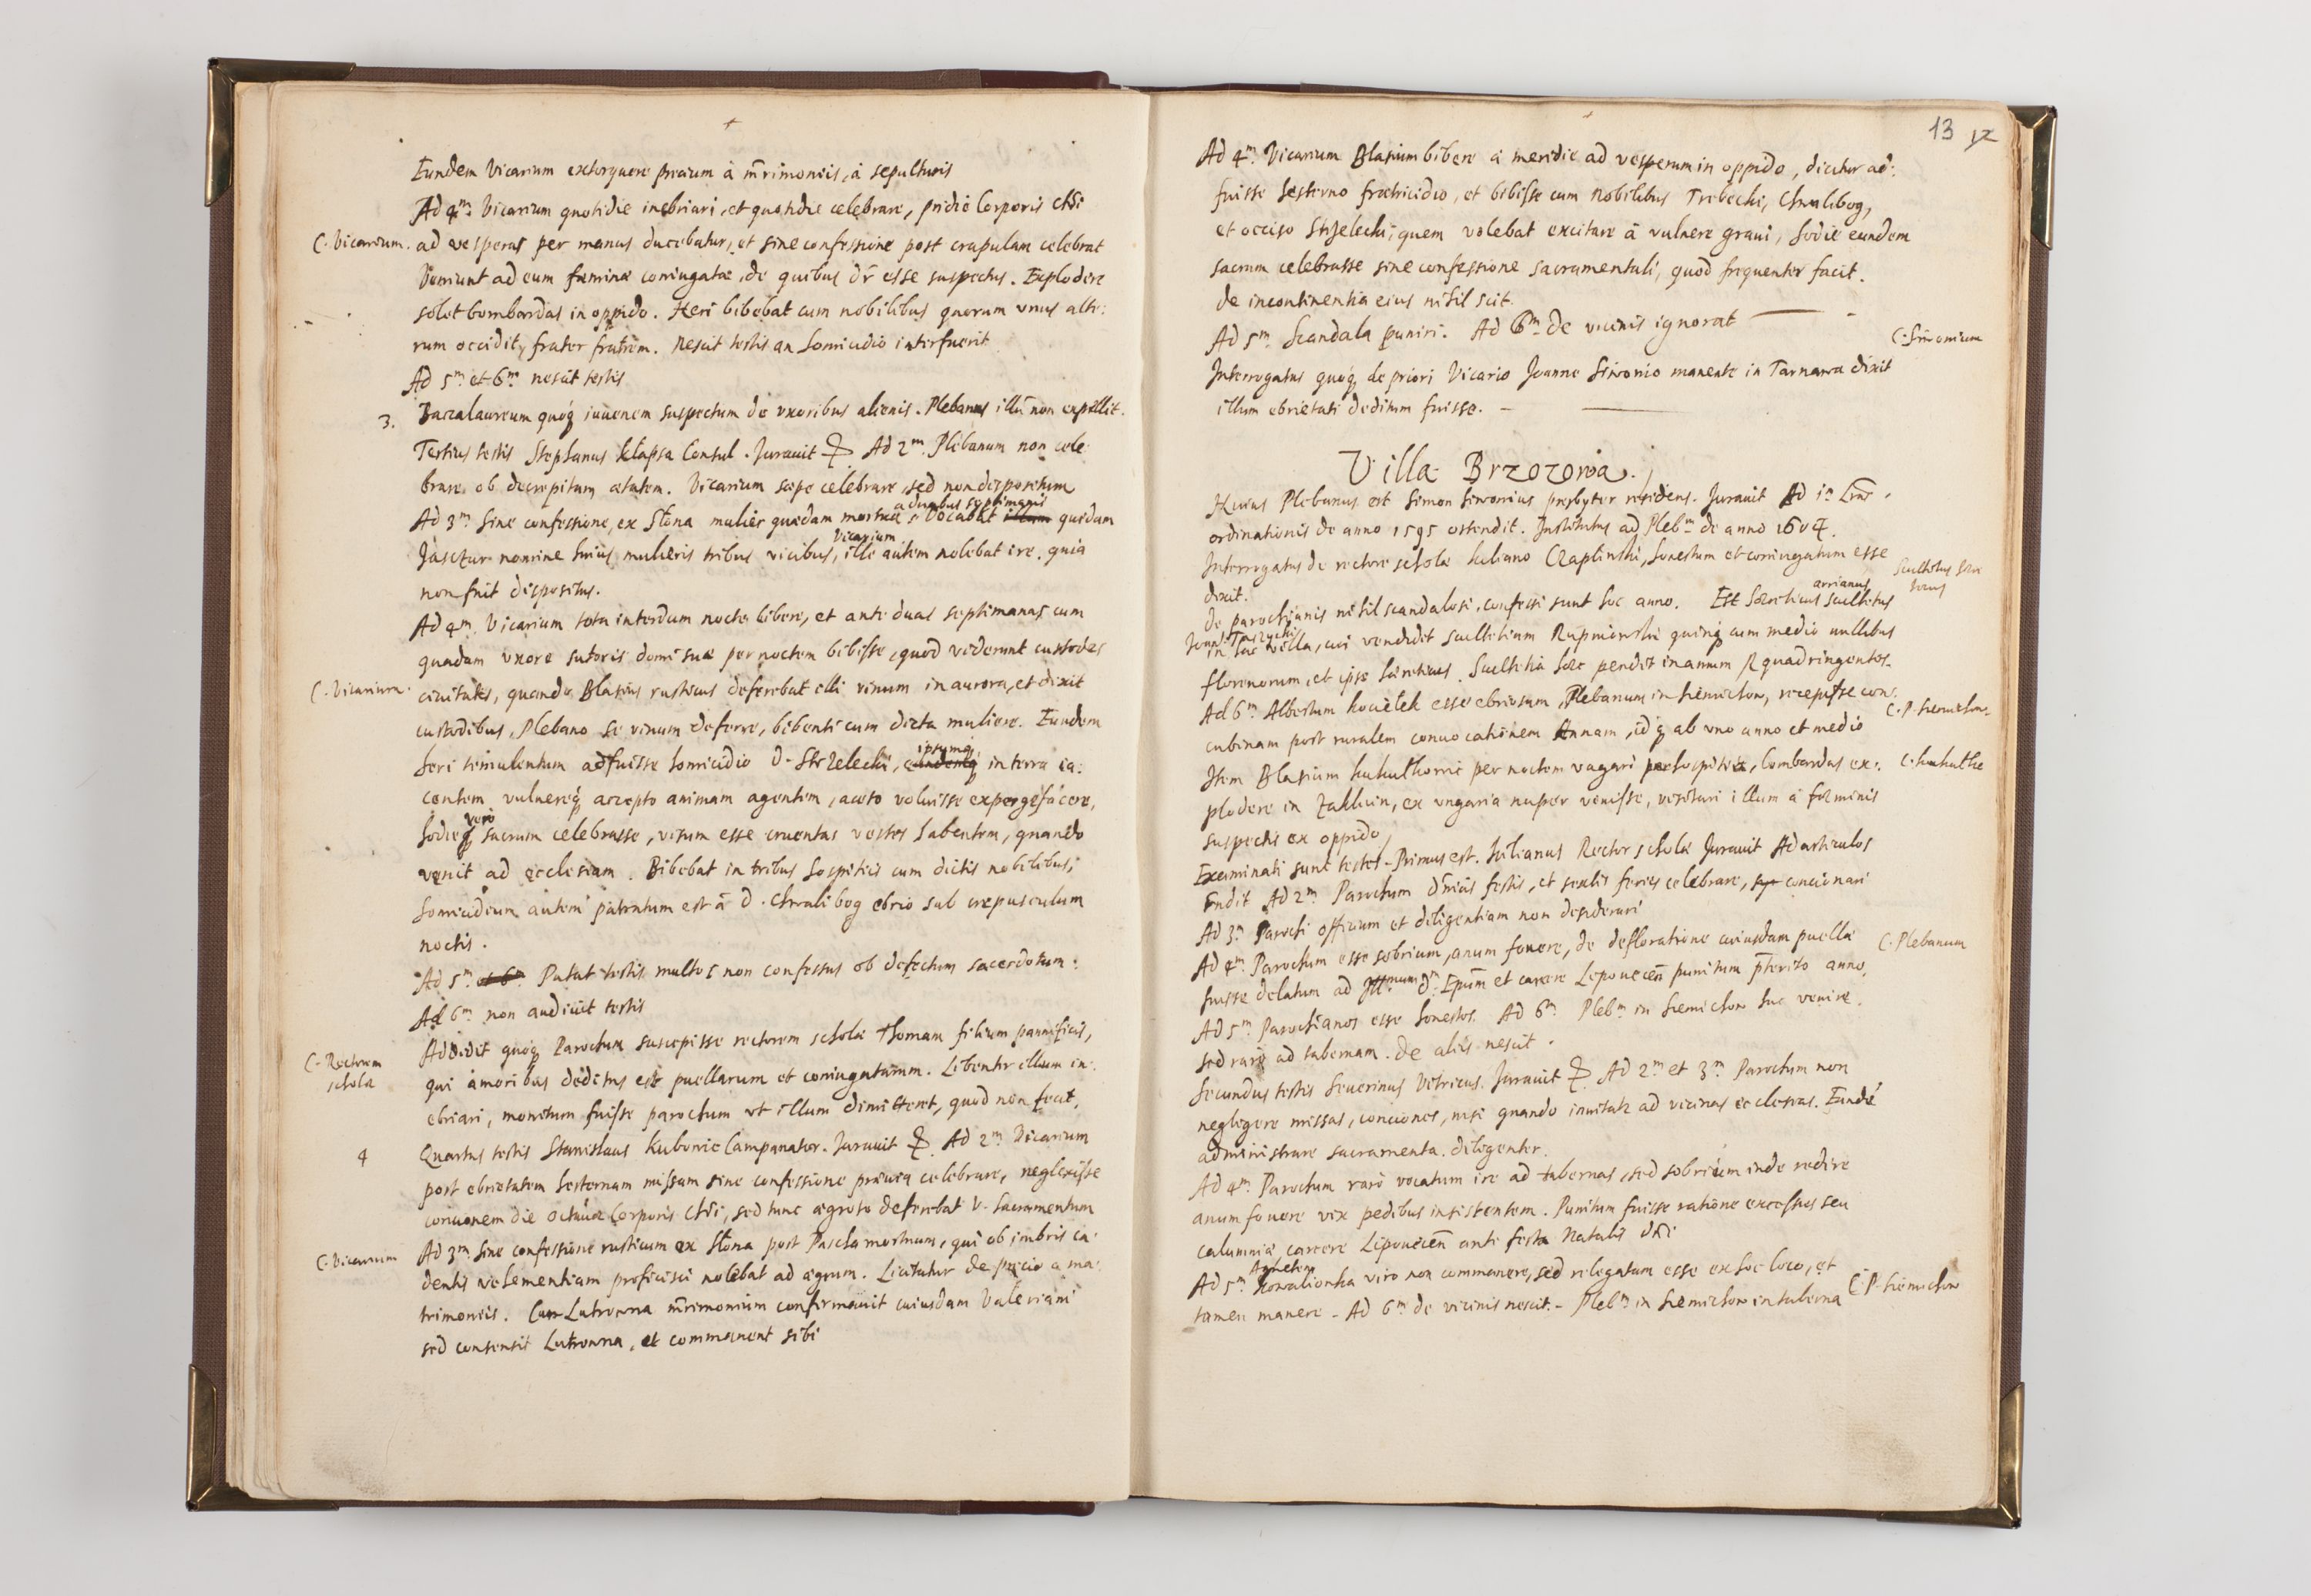 Eundem Vicarium extorquere precium à m̄rimoniis, à sepulturis
Ad 4m. Vicarium quotidie inebriari, et quotidie celebrare, pridie Corporis Chri
C. Vicarium. ad vesperas per manus ducebatur, et sine confessione post crapulam celebrat
Veniunt ad eum fæminæ coniugatæ de quibus dr̄ esse suspectus. Explodere
solet bombardas in oppido. Heri bibebat cum nobilibus quorum vnus alte:
rum occidit, frater fratrem. Nescit testis an homicidio interfuerit
Ad 5m et 6m nescit testis
Baccalaureum quoq iuuenem suspectum de vxoribus alienis. Plebanus illū non expellit.
3. Tertius testis Stephanus Kłapsa Consul. Jurauit Ad 2m. Plebanum non cele
brare ob decrepitam ætatem. Vicarium sæpe celebrare, sed non dispositum
a duabus septimanis
Ad 3m sine confessione, ex Słona mulier quædam mortua, vocabat illum quidam
Vicarium
nomine huius mulieris tribus vicibus, ille autem nolebat ire, quia
non fuit dispositus.
Ad 4m. Vicarium tota interdum nocte bibere, et ante duas septimanas cum
quadam vxore sutoris domi suæ per noctem bibisse, quod viderunt custodes
C. Vicarium. ciuitatis, quando Blasius rusticus deferebat illi vinum in aurora, et dixit
custodibus, Plebano se vinum deferre, bibenti cum dicta muliere. Eundem
ipsumq
heri temulentum adfuisse homicidio D. Strzelecki, eundemq in terra ia:
centem vulnereq accepto animam agentem, aceto voluisse expergefacere,
vero
hodieq sacrum celebrasse, visum esse cruentas vestes habentem, quando
venit ad ecclesiam. Bibebat in tribus hospitiis cum dictis nobilibus,
homicidium autem patratum est à D. Chwalibog ebrio sub crepusculum
noctis.
Ad 5m et 6m Putat testis multos non confessos ob defectum sacerdotum.
Ad 6m non audiuit testis
C. Rectorem scholæ
Addidit quoq Parochum suscepisse rectorem scholæ Thomam filium pannificis,
qui amoribus deditus est puellarum et coniugatarum. Libenter illum in:
ebriari, monitum fuisse parochum vt illum dimitteret, quod non fecit.
4 Quartus testis Stanislaus Kubowic Campanator. Jurauit Ad 2m Vicarium
post ebrietatem hesternam missam sine confessione præuia celebrare, neglexisse
concionem die octaua Corporis Chri, sed tunc ægroto deferebat V. Sacramentum
C. Vicarium Ad 3m sine confessione rusticum ex Słona post Pascha mortuum, qui ob imbris ca:
dentis vehementiam proficisci nolebat ad ægrum. Licitatur de precio a ma:
trimoniis. Cum Lutrowna m̄rimonium confirmauit cuiusdam Valeriani
sed consensit Lutrowna, et commanent sibi
13 12
Ad 4m. Vicarium Blasium bibere à meridie ad vesperum in oppido, dicitur ad:
fuisse hesterno fratricidio, et bibisse cum Nobilibus Trebecki, Chwalibog,
et occiso Strzelecki, quem volebat excitare à vulnere graui, hodie eundem
sacrum celebrasse sine confessione sacramentali, quod frequenter facit.
de incontinentia eius nihil scit.
Ad 5m. Scandala puniri. Ad 6m de vicinis ignorat
C. Sironium
Interrogatus quoq de priori Vicario Joanne Sironio manente in Tarnawa dixit
illum ebrietati deditum fuisse.
Villa Brzozowa.
Huius Plebanus est Simon Sironius presbyter residens. Jurauit Ad 1m Lrās
ordinationis de anno 1595 ostendit. Institutus ad Plebm de anno 1604.
Interrogatus de rectore scholæ Juliano Czaplinski, honestum et coniugatum esse
dixit.
Scultetus hære
ticus
arrianus
De parochianis nihil scandalosi, confessi sunt hoc anno. Est hæreticus scultetus
Joannes Taszycki
in hac villa, cui vendidit scultetiam Rupniowski quinq cum medio millibus
florenorum, et ipse hæreticus. Scultetia hæc pendet in annum R quadringentos.
Ad 6m Albertum Kociełek esse ebriosum, Plebanum in Siemiechow, recepisse con:
C. P. Siemiechow.
cubinam post ruralem conuocationem Annam, idq ab vno anno et medio
Item Blasium Kukulkowic per noctem vagari per hospitia, bombardas ex:
C. Kukulka
plodere in Zakliczin, ex vngaria nuper venisse, visitari illum à fæminis
suspectis ex oppido
Examinati sunt testes. Primus est. Julianus Rector scholæ Jurauit Ad articulos
Ad 2m Parochum dn̄icis festis, et sextis feriis celebrare, concionari
Ad 3m Parochi officium et diligentiam non desiderari
Ad 4m Parochum esse sobrium, anum fouere, de defloratione cuiusdam puellæ
C. Plebanum
fuisse delatum ad Illmum Dm. Epūm et carcere Lepouecen̄ punitum p̄terito anno.
Ad 5m Parochianos esse honestos. Ad 6m Plebm in Siemichow huc venire,
sed raro ad tabernam. De aliis nescit.
Secundus testis Seuerinus Vitricus. Jurauit Ad 2m et 3m Parochum non
neglegere missas, conciones, nisi quando inuitatr ad vicinas ecclesias. Eundē
administrare sacramenta diligenter.
Ad 4m Parochum raro vocatum ire ad tabernas, sed sobrium inde redire
anum fouere vix pedibus insistentem. Punitum fuisse ratione excessus seu
calumniæ, carcere Lipouecen̄ ante festa Natalis Dn̄i
Agneten
Ad 5m Kowalionka viro non commanere, sed relegatam esse ex hoc loco, et
C. P. Siemichow
tamen manere - Ad 6m de vicinis nescit. - Plebm in Siemichow in taberna